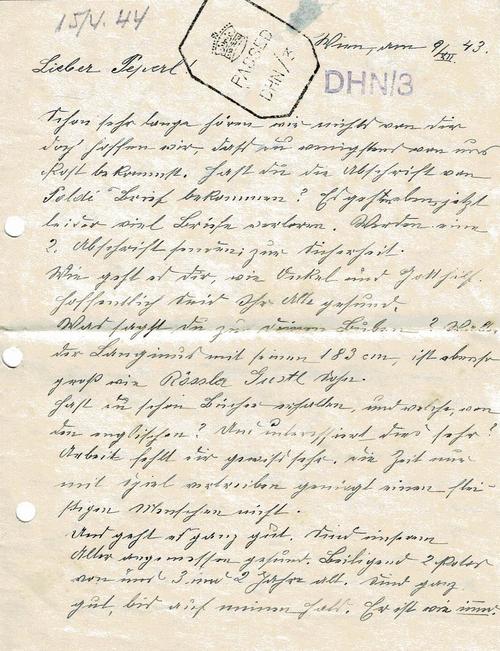 15/4. 44
PASSED
DHN/3
Wien, am 9/XII. 43.
DHN/3
Lieber Peperl!
Schon sehr lange hören wir nichts von dir
doch hoffen wir dass du wenigstens von uns
Post bekommst. Hast du die Abschrift von
Poldi Brief bekommen? Es gehen jetzt
leider viel Briefe verloren. Werden eine
2. Abschrift senden zur Sicherheit.
Wie geht es dir, wie Onkel und Gotthilf.
Hoffentlich seid Ihr Alle gesund.
Was sagst du zu deinen Buben?
der Longinus mit seinen 183 cm, ist ebenso
groß wie Rössler Gustl Sohn.
Hast du schon Bücher erhalten, und welche, von
den englischen? Und interessiert dies sehr?
Arbeit fehlt dir gewiss sehr. die Zeit nur
mit Spiel vertreiben genügt einen flei-
ßigen Menschen nicht.
Uns geht es ganz gut. Sind unserem
Alter angemessen gesund. Beiliegend 2 Fotos
von uns 3 und 2 Jahre alt. Sind ganz
gut, bis auf meinen Hals. Er ist wie